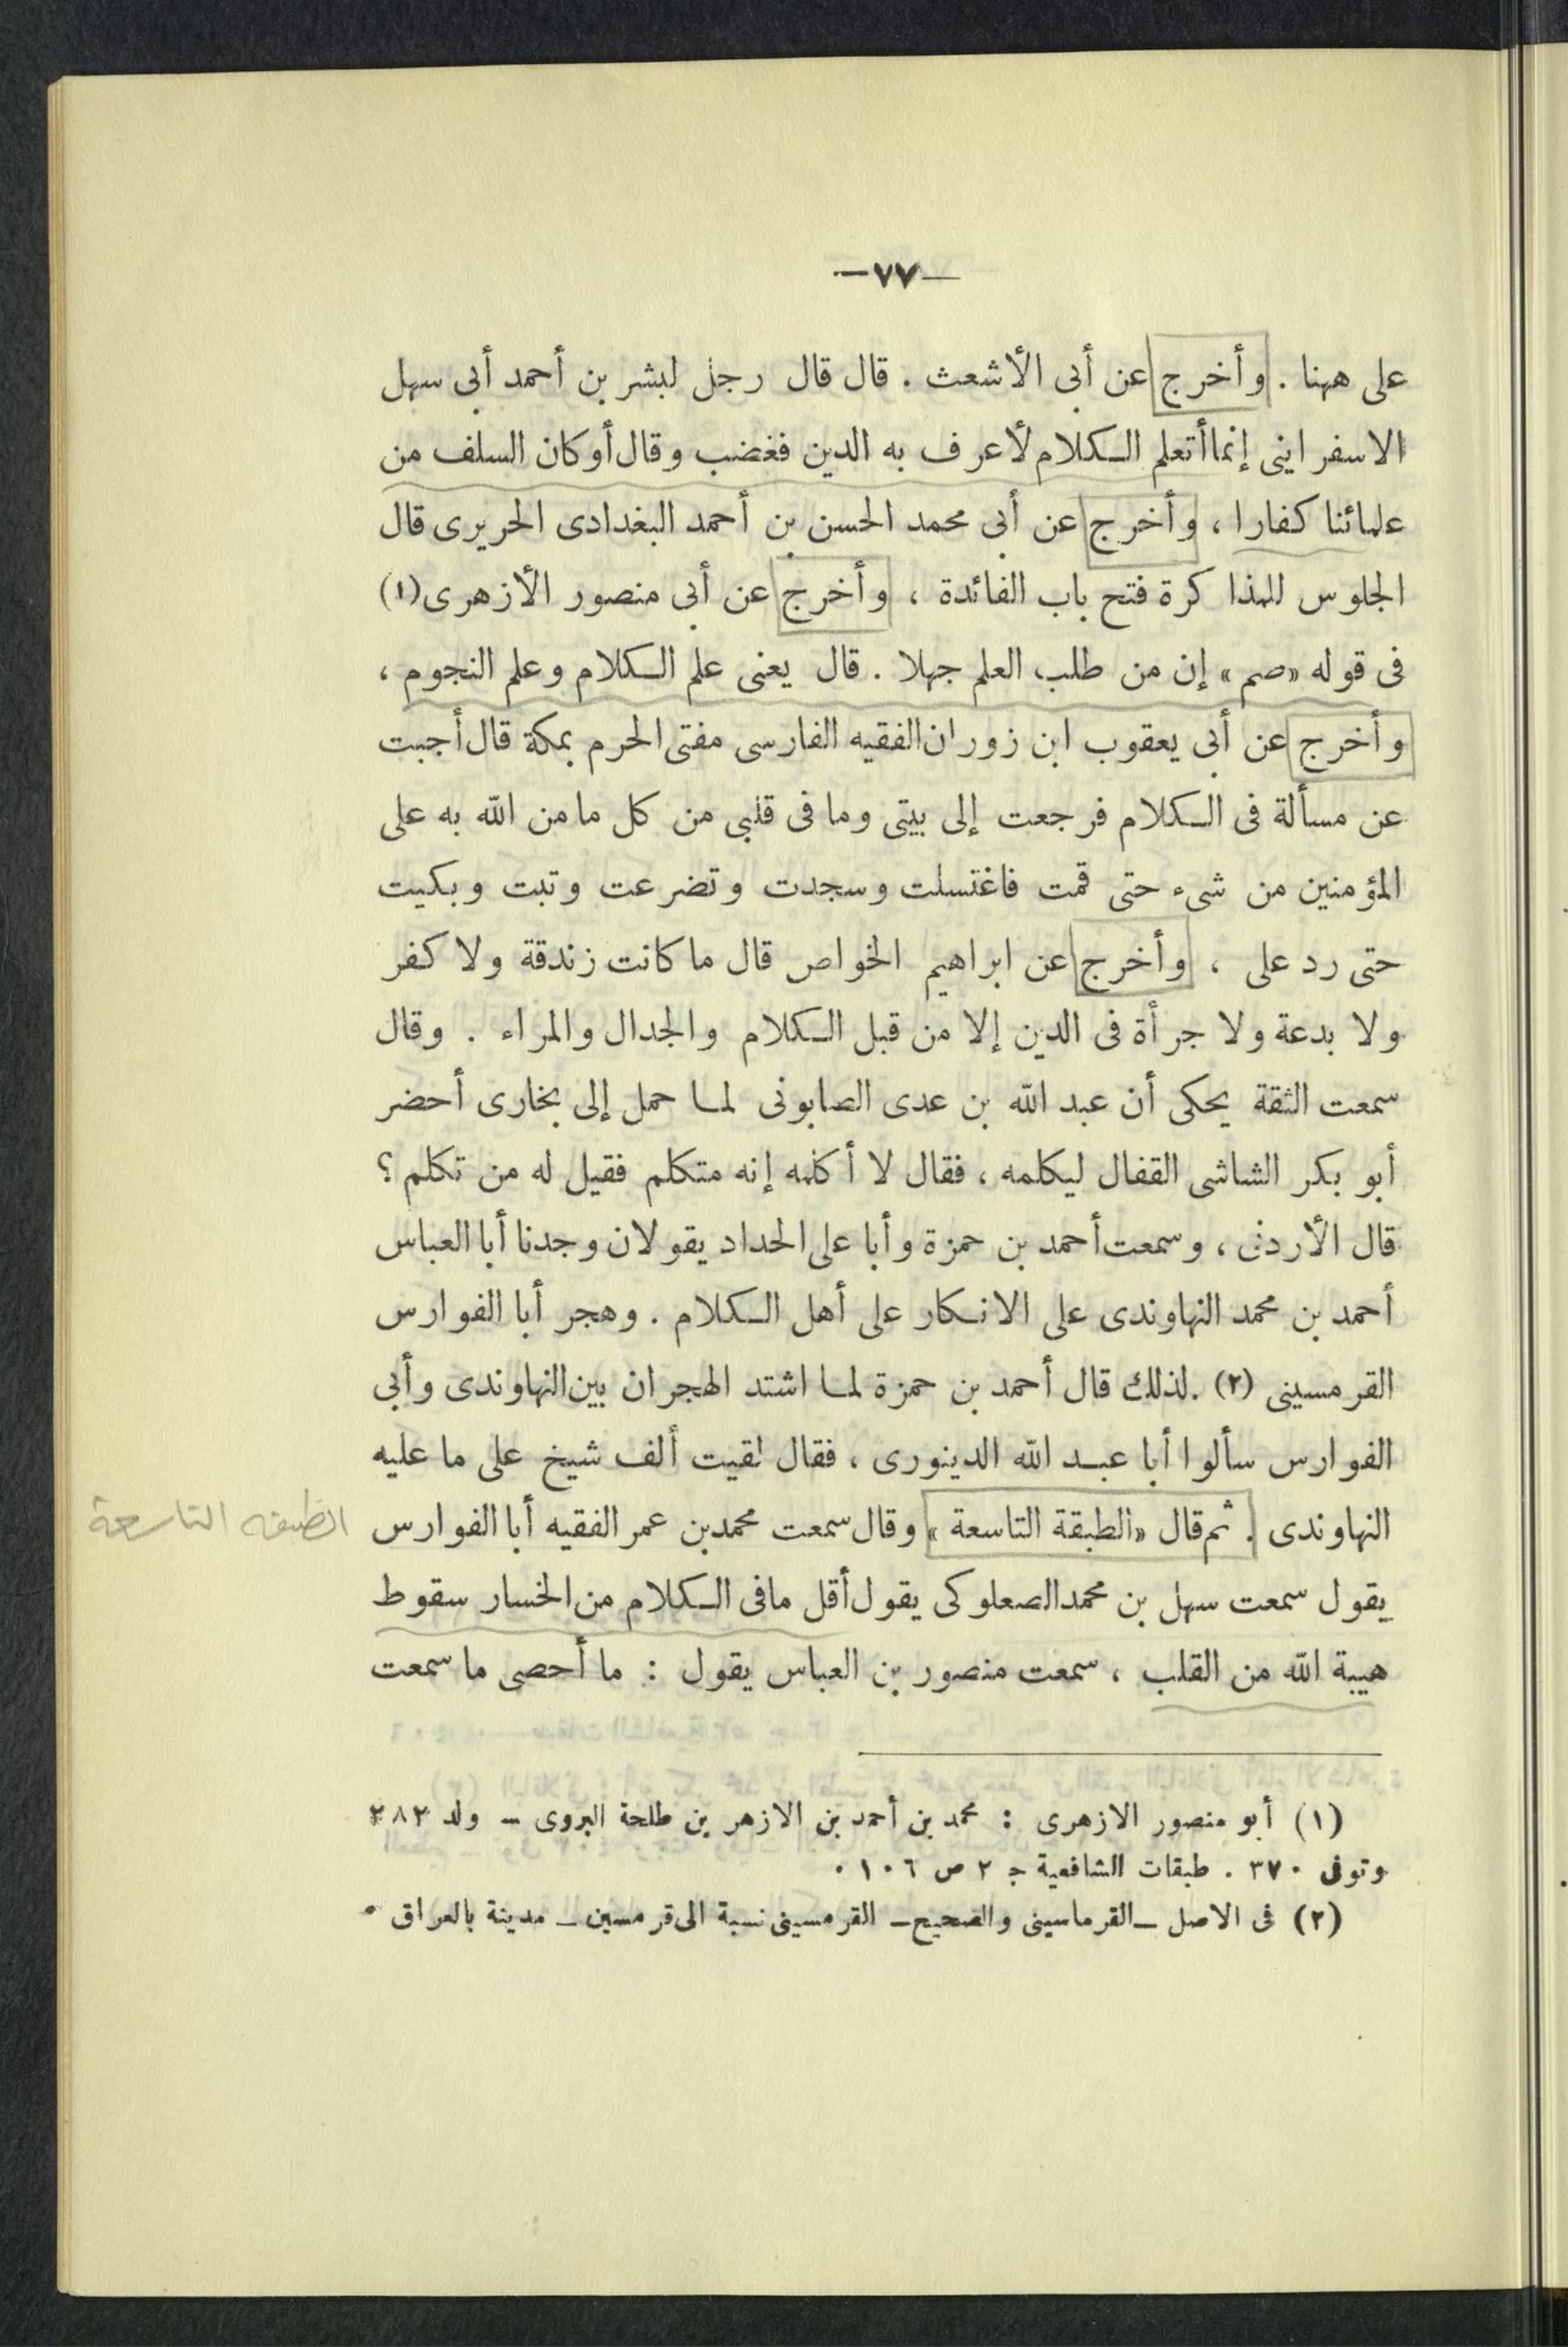 —٧٧—
على ههنا . وأخرج عن أبى الأشعث . قال قال رجل لبشر بن أحمد أبى سهل
الاسفراينى إنما أتعلم الكلام لأعرف به الدين فغضب وقال أوكان السلف من
علمائنا كفارا ، وأخرج عن أبى محمد الحسن بن أحمد البغدادى الحريرى قال
الجلوس للمذاكرة فتح باب الفائدة ، وأخرج عن أبى منصور الأزهرى (١)
فى قوله «صم» إن من طلب العلم جهلا . قال يعنى علم الكلام وعلم النجوم ،
وأخرج عن أبى يعقوب ابن زوران الفقيه الفارسى مفتى الحرم بمكة قال أجبت
عن مسألة فى الكلام فرجعت إلى بيتى وما فى قلبى من كل ما من الله به على
المؤمنين من شىء حتى قمت فاغتسلت وسجدت وتضرعت وتبت وبكيت
حتى رد على ، وأخرج عن ابراهيم الخواص قال ما كانت زندقة ولا كفر
ولا بدعة ولا جرأة فى الدين إلا من قبل الكلام والجدال والمراء . وقال
سمعت الثقة يحكى أن عبد الله بن عدى الصابونى لما حمل إلى بخارى أحضر
أبو بكر الشاشى القفال ليكلمه ، فقال لا أكلمه إنه متكلم فقيل له من تكلم ؟
قال الأردنى ، وسمعت أحمد بن حمزة وأبا على الحداد يقولان وجدنا أبا العباس
أحمد بن محمد النهاوندى على الانكار على أهل الكلام . وهجر أبا الفوارس
القرمسينى (٢) . لذلك قال أحمد بن حمزة لما اشتد الهجران بين النهاوندى وأبى
الفوارس سألوا أبا عبد الله الدينورى ، فقال لقيت ألف شيخ على ما عليه
النهاوندى . ثم قال «الطبقة التاسعة» وقال سمعت محمد بن عمر الفقيه أبا الفوارس
الطبقه التاسعة
يقول سمعت سهل بن محمد الصعلوكى يقول أقل مافى الكلام من الخسار سقوط
هيبة الله من القلب ، سمعت منصور بن العباس يقول : ما أحصى ما سمعت
(١) أبو منصور الازهرى : محمد بن أحمد بن الازهر بن طلحة الهروى – ولد ٢٨٢
وتوفى ٣٧٠ . طبقات الشافعية ج ٢ ص ١٠٦ .
(٢) فى الاصل – القرماسينى والصحيح – القرمسينى نسبة الى قرمسين – مدينة بالعراق .